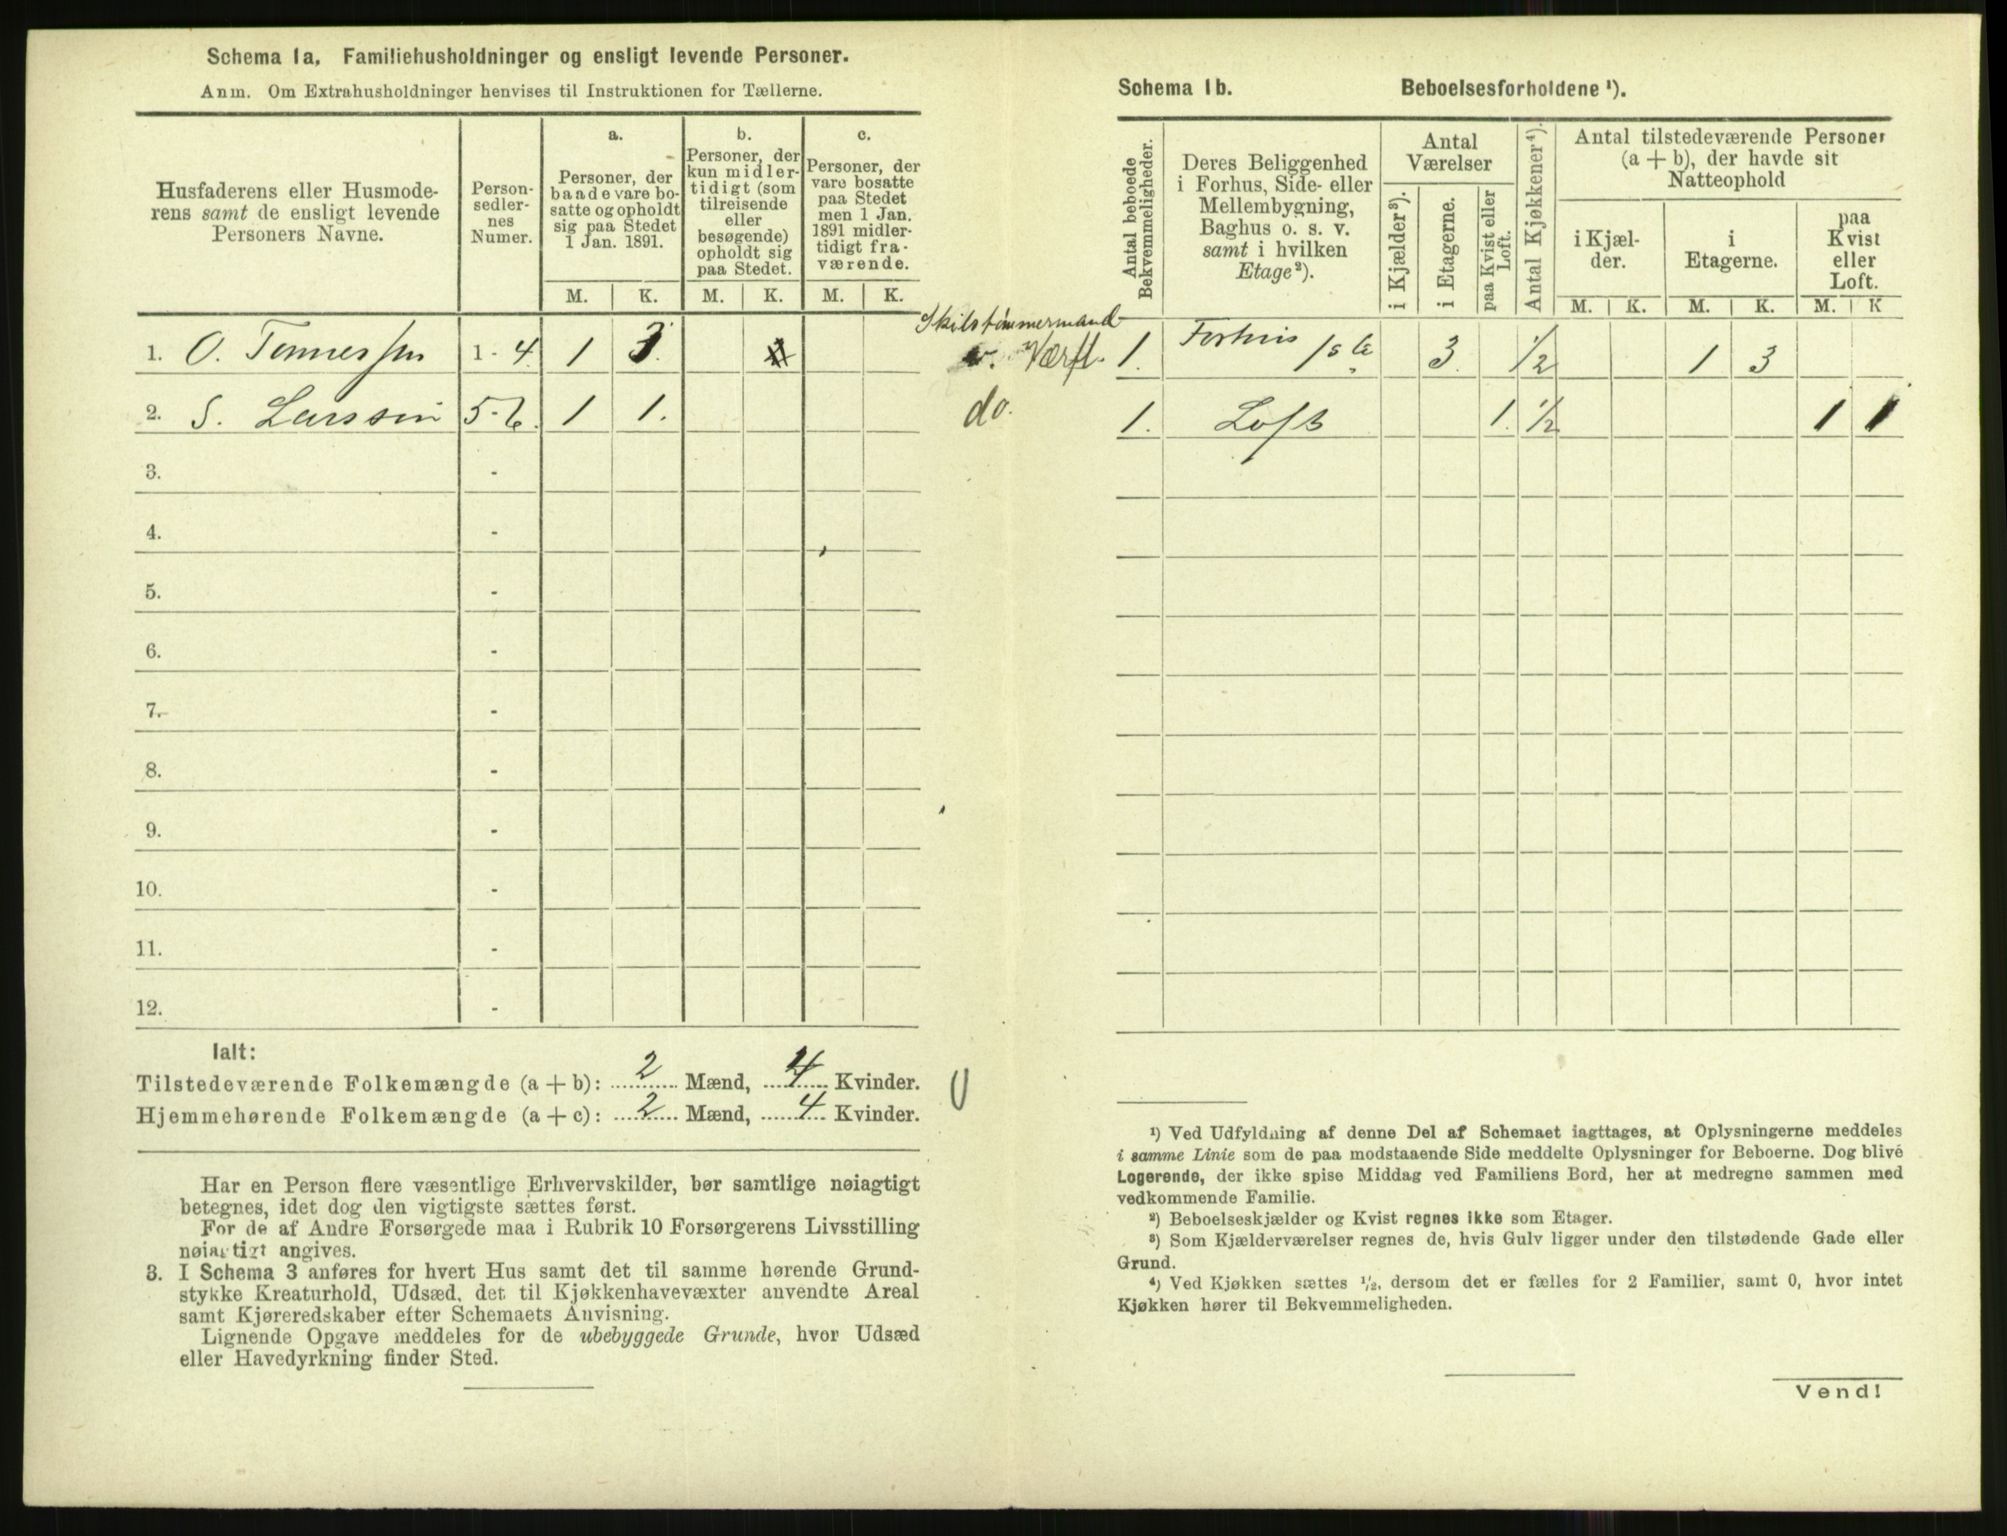 Schema 1a. Familiehusholdninger og ensligt levende Personer.
Anm. Om Extrahusholdninger henvises til Instruktionen for Tællerne.
Husfaderens eller Husmode-
rens samt de ensligt levende
Personers Navne.
Person-
sedler-
nes
Numer.
a.
Personer, der
baade vare bo-
satte og opholdt
sig paa Stedet
1 Jan. 1891.
b.
Personer, der
kun midler-
tidigt (som
tilreisende
eller
besøgende)
opholdt sig
paa Stedet.
c.
Personer, der
vare bosatte
paa Stedet
men 1 Jan.
1891 midler-
tidigt fra-
værende.
M. K. M. K. M. K.
1. O. Tønnessen 1 - 4. 1 3.
2. S. Larssen 5-6. 1 1.
3. -
4. -
5. -
6. -
7. -
8. -
9. -
10. -
11. -
12. -
Ialt:
Tilstedeværende Folkemængde (a + b): 2 Mænd, 4 Kvinder.
Hjemmehørende Folkemængde (a + c): 2 Mænd, 4 Kvinder.
Har en Person flere væsentlige Erhvervskilder, bør samtlige nøiagtigt
betegnes, idet dog den vigtigste sættes først.
For de af Andre Forsørgede maa i Rubrik 10 Forsørgerens Livsstilling
nøiagtigt angives.
3. I Schema 3 anføres for hvert Hus samt det til samme hørende Grund-
stykke Kreaturhold, Udsæd, det til Kjøkkenhavevæxter anvendte Areal
samt Kjøreredskaber efter Schemaets Anvisning.
Lignende Opgave meddeles for de ubebyggede Grunde, hvor Udsæd
eller Havedyrkning finder Sted.
Skibstømmermand
v. Værft.
do.
Schema 1b. Beboelsesforholdene ¹).
Antal beboede
Bekvemmeligheder.
Deres Beliggenhed
i Forhus, Side- eller
Mellembygning,
Baghus o. s. v.
samt i hvilken
Etage²).
Antal
Værelser
i Kjælder³).
i Etagerne.
paa Kvist eller
Loft.
Antal Kjøkkener⁴).
Antal tilstedeværende Personer
(a + b), der havde sit
Natteophold
i Kjæl-
der.
i
Etagerne.
paa
Kvist
eller
Loft.
M. K. M. K. M. K
1. Forhus 1ste 3. ½ 1 3
1. Loft 1. ½ 1 1
¹) Ved Udfyldning af denne Del af Schemaet iagttages, at Oplysningerne meddeles
i samme Linie som de paa modstaaende Side meddelte Oplysninger for Beboerne. Dog blive
Logerende, der ikke spise Middag ved Familiens Bord, her at medregne sammen med
vedkommende Familie.
²) Beboelseskjælder og Kvist regnes ikke som Etager.
³) Som Kjælderværelser regnes de, hvis Gulv ligger under den tilstødende Gade eller
Grund.
⁴) Ved Kjøkken sættes ½, dersom det er fælles for 2 Familier, samt 0, hvor intet
Kjøkken hører til Bekvemmeligheden.
Vend!